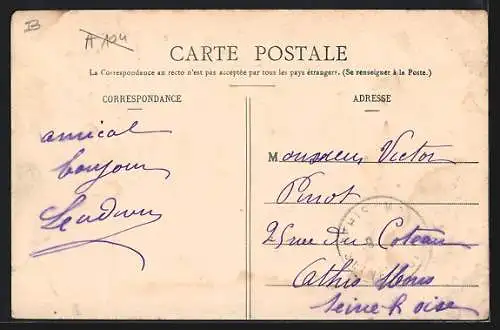 B
A 104
CARTE POSTALE
La Correspondance au recto n'est pas acceptée par tous les pays étrangers. (Se renseigner à la Poste.)
CORRESPONDANCE
amical
bonjour
ADRESSE
Monsieur Victor
Pinot
25 rue du Coteau
Athis Mons
Seine & oise